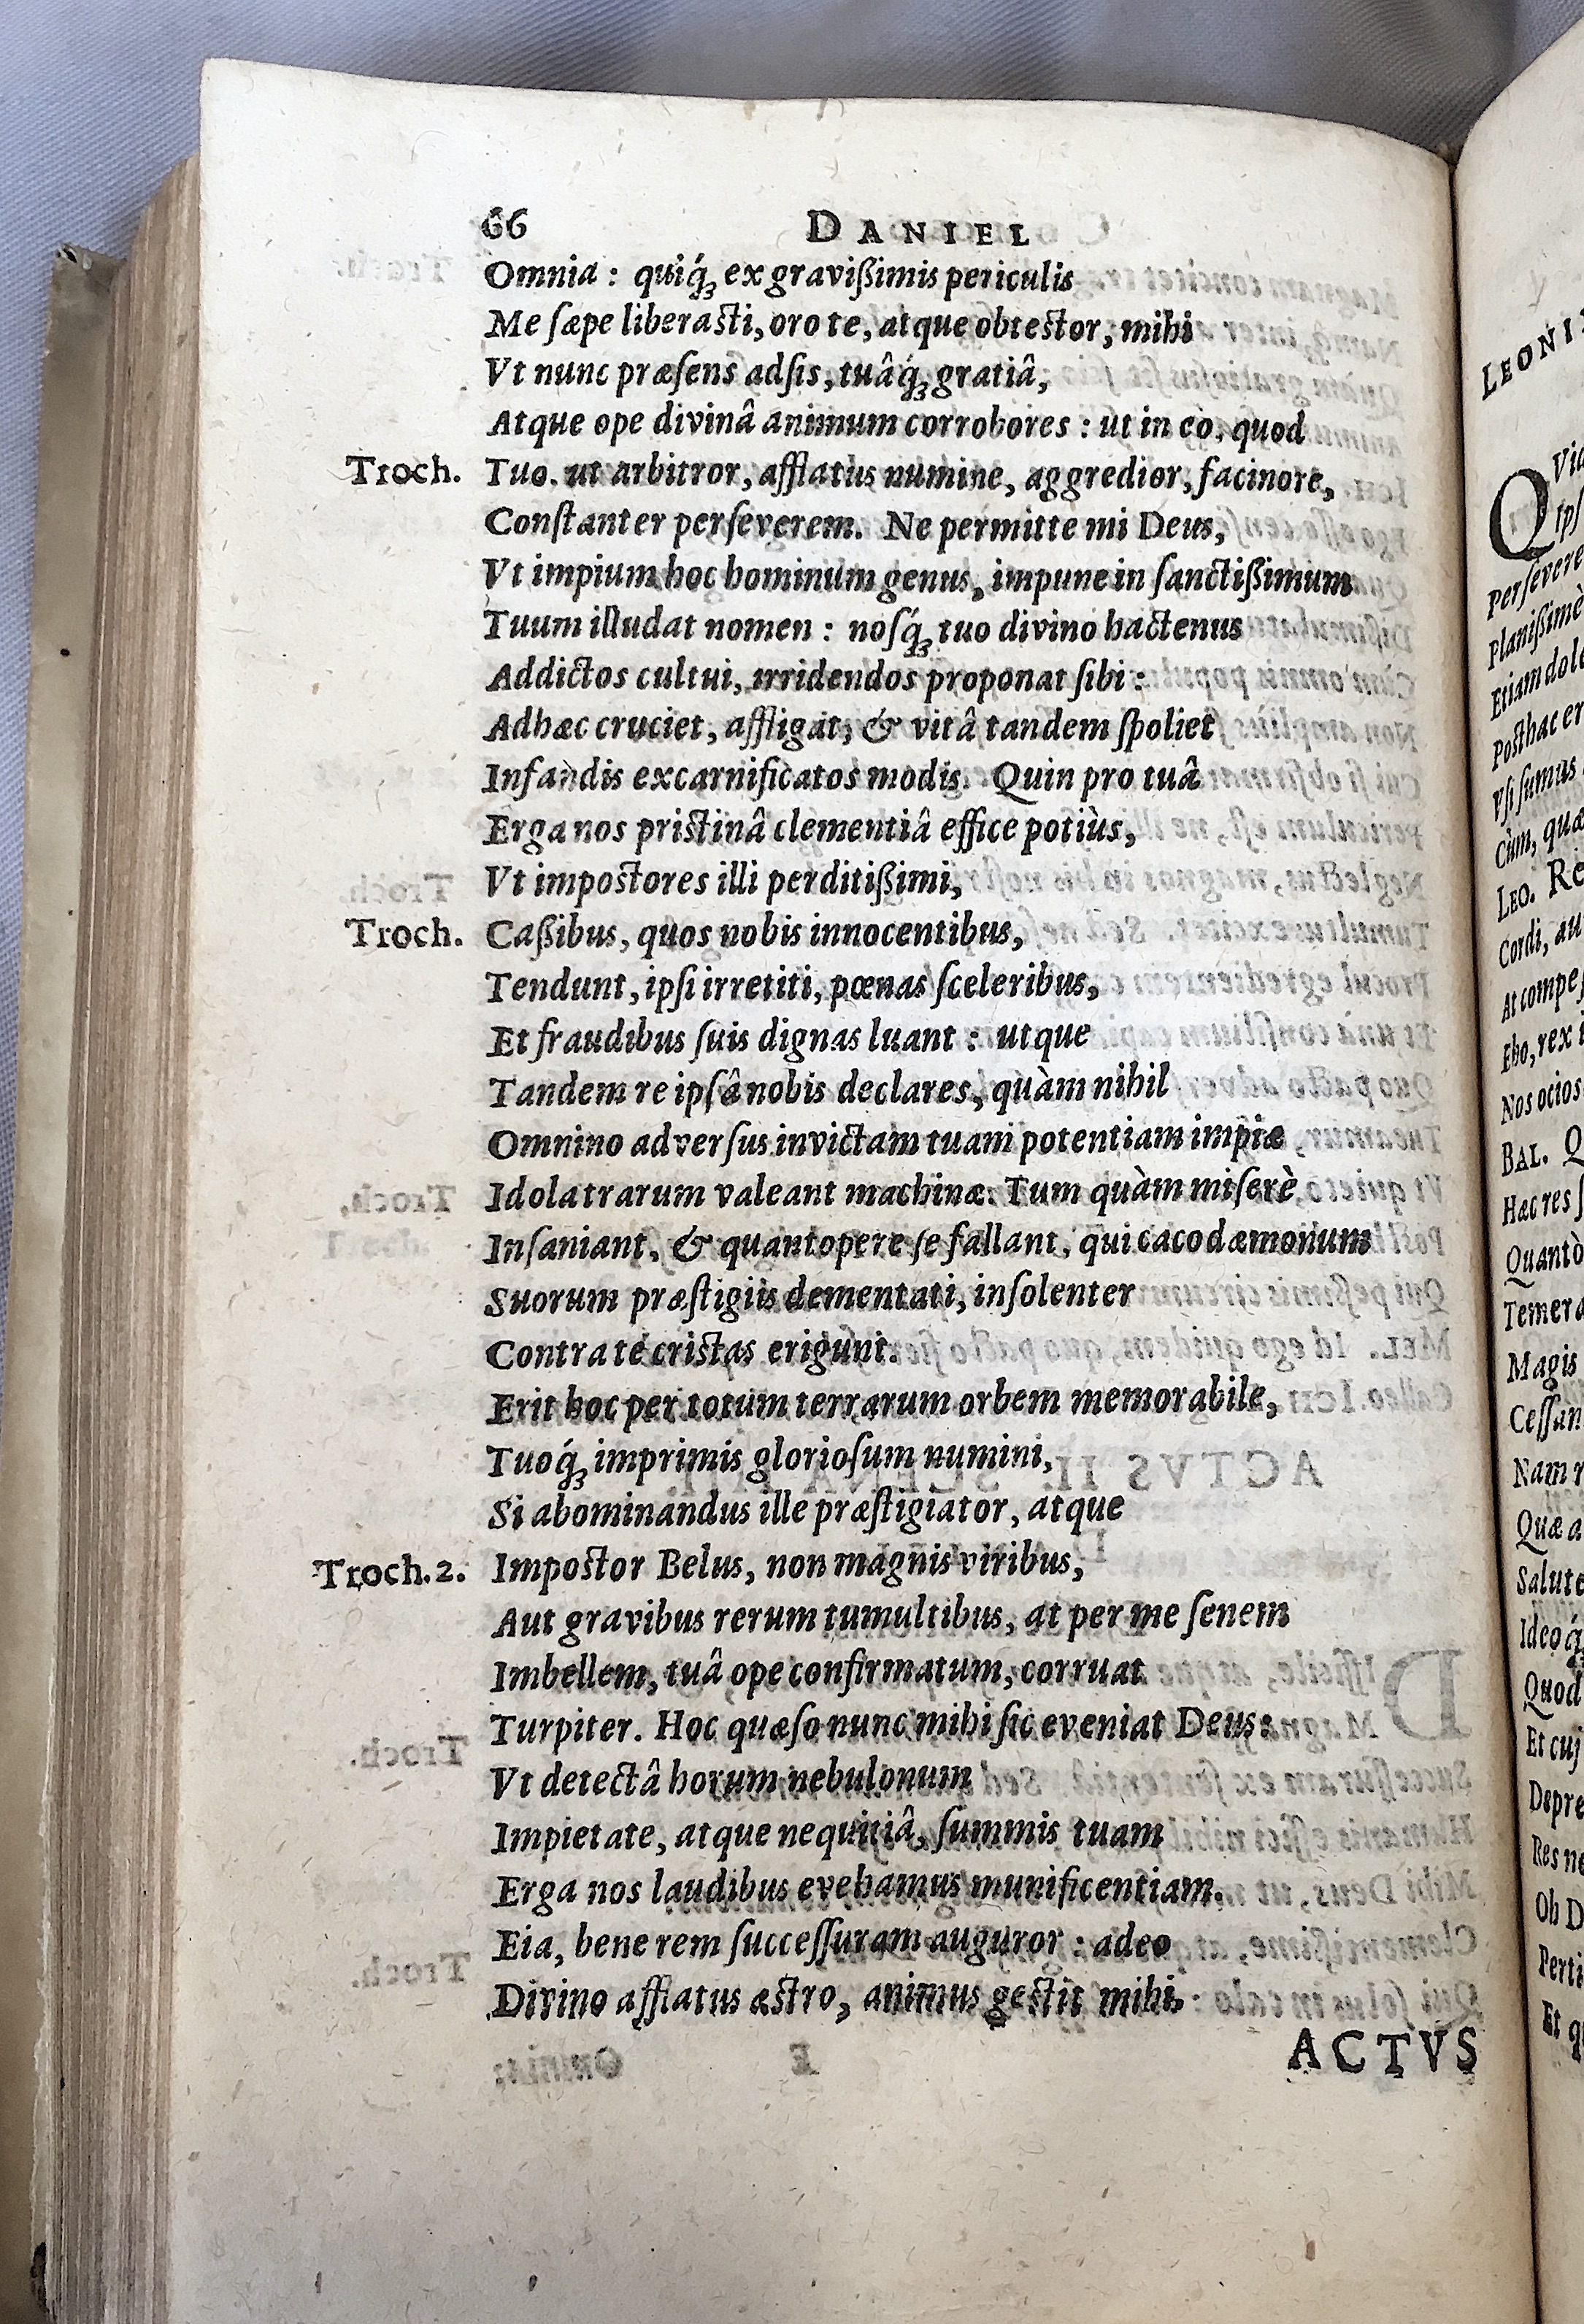 66 DANIEL
Omnia : quiq́ꝫ ex graviſsimis periculis
Me ſæpe liberaſti, oro te, atque obteſtor, mihi
Vt nunc præſens adſis, tuâq́ꝫ gratiâ,
Atque ope divinâ animum corrobores : ut in eo, quod
Troch. Tuo, ut arbitror, afflatus numine, aggredior, facinore,
Conſtanter perſeverem. Ne permitte mi Deus,
Vt impium hoc hominum genus, impune in ſanctiſsimum
Tuum illudat nomen : noſq́ꝫ tuo divino hactenus
Addictos cultui, irridendos proponat ſibi :
Adhæc cruciet, affligat, & vitâ tandem ſpoliet
Infandis excarnificatos modis. Quin pro tuâ
Erga nos priſtinâ clementiâ effice potiùs,
Vt impoſtores illi perditiſsimi,
Troch. Caſsibus, quos nobis innocentibus,
Tendunt, ipſi irretiti, pœnas ſceleribus,
Et fraudibus ſuis dignas luant : utque
Tandem re ipſâ nobis declares, quàm nihil
Omnino adverſus invictam tuam potentiam impiæ
Idolatrarum valeant machinæ. Tum quàm miſerè
Inſaniant, & quantopere ſe fallant, qui cacodæmonum
Suorum præſtigiis dementati, inſolenter
Contra te criſtas erigunt.
Erit hoc per totum terrarum orbem memorabile,
Tuoq́ꝫ imprimis glorioſum numini,
Si abominandus ille præſtigiator, atque
Troch. 2. Impoſtor Belus, non magnis viribus,
Aut gravibus rerum tumultibus, at per me ſenem
Imbellem, tuâ ope confirmatum, corruat
Turpiter. Hoc quæſo nunc mihi ſic eveniat Deus:
Vt detectâ horum nebulonum
Impietate, atque nequitiâ, ſummis tuam
Erga nos laudibus evehamus munificentiam.
Eia, bene rem ſucceſſuram auguror : adeo
Divino afflatus æſtro, animus geſtit mihi.
ACTVS
Q
Perſevere
Planiſsimè
Etiam dole
Poſthac er
Vſi ſumus
Cùm, quæ
LEO. Re
Cordi, au
At compeſ
Eho, rex i
Nos ocios
BAL. Q
Hæc res ſ
Quantò
Temera
Magis
Ceſſan
Nam r
Quæ a
Salute
Ideoq́ꝫ
Quod
Et cuj
Depre
Res ne
Ob D
Perti
Et qu